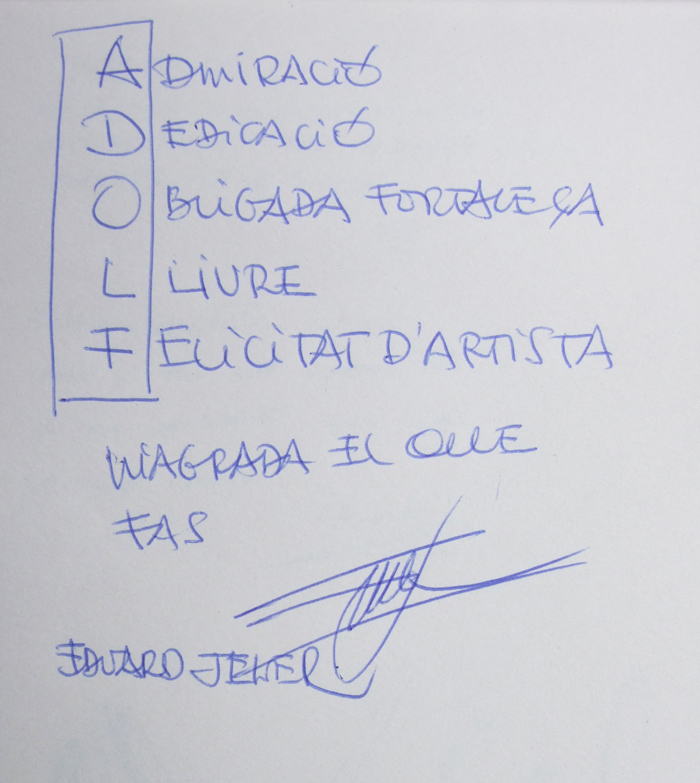 ADMIRACIÓ
DEDICACIÓ
OBLIGADA FORTALEÇA
LLIURE
FELICITAT D'ARTISTA
M'AGRADA EL QUE
FAS
EDUARD